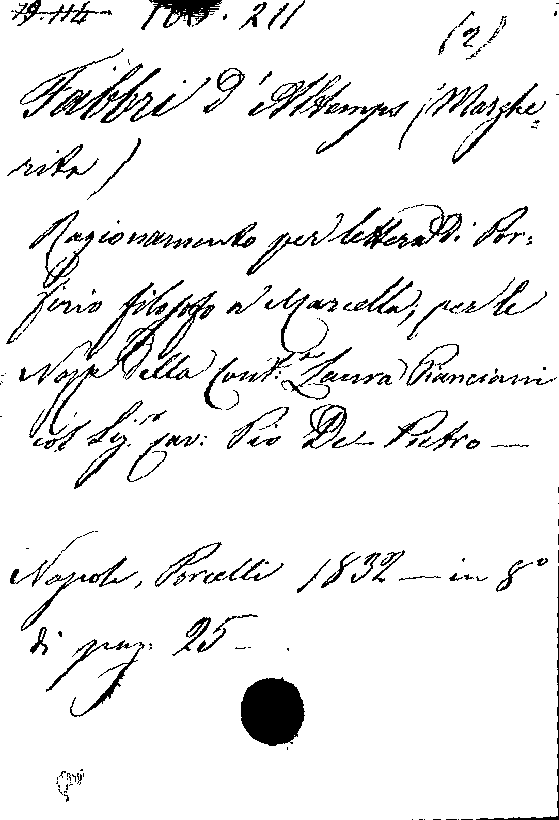 79.114 103. 211
(2)
Fabbri D'Altemps (Marghe=
rita)
Ragionamento per lettera di Por=
firio filosofo a Marcella, per le
Nozze della Cont.ª Laura Pianciani
col Sig.r Cav: Pio De Pietro —
Napoli, Porcelli 1832 — in 8º
di pag. 25 —